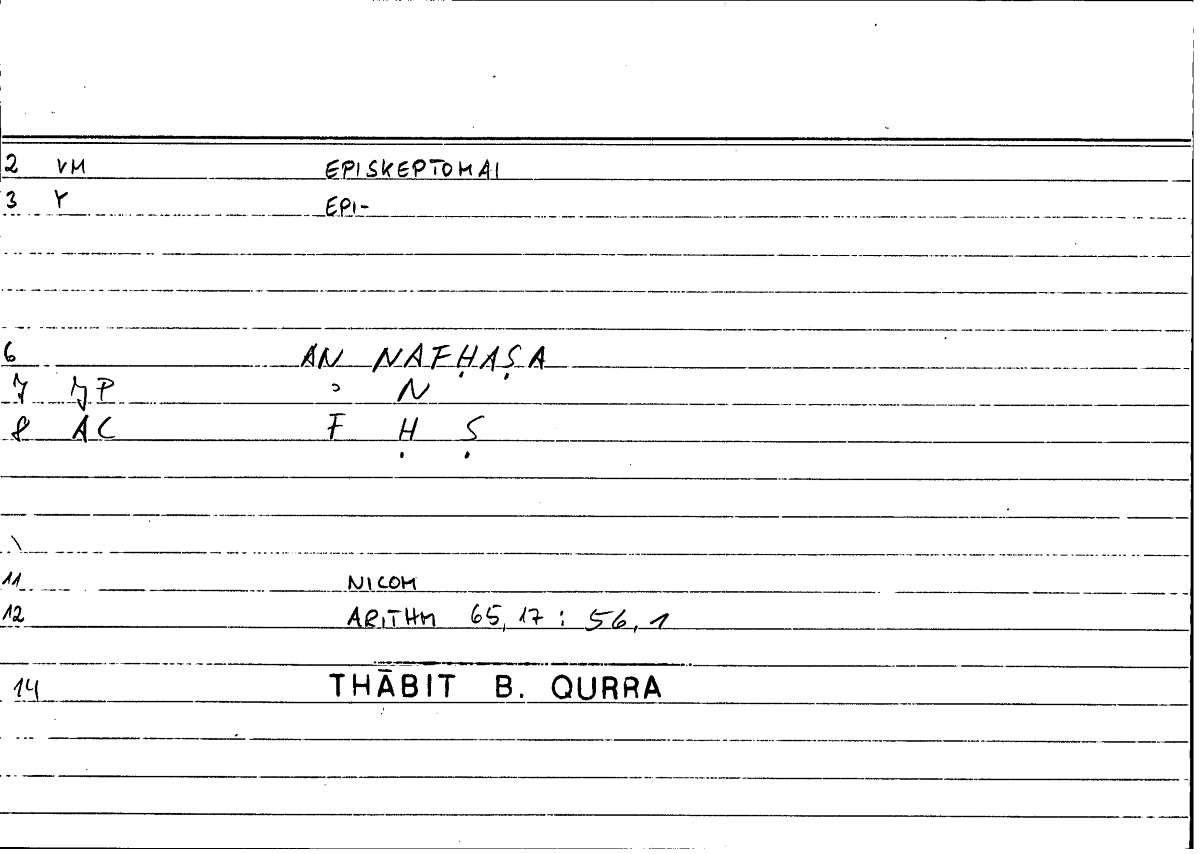 2 VM EPISKEPTOMAI
3 Y EPI-
6 AN NAFḤAṢA
7 JP ʾ N
8 AC F Ḥ Ṣ
11 NICOM
12 ARITHM 65,17 : 56,1
14 THĀBIT B. QURRA